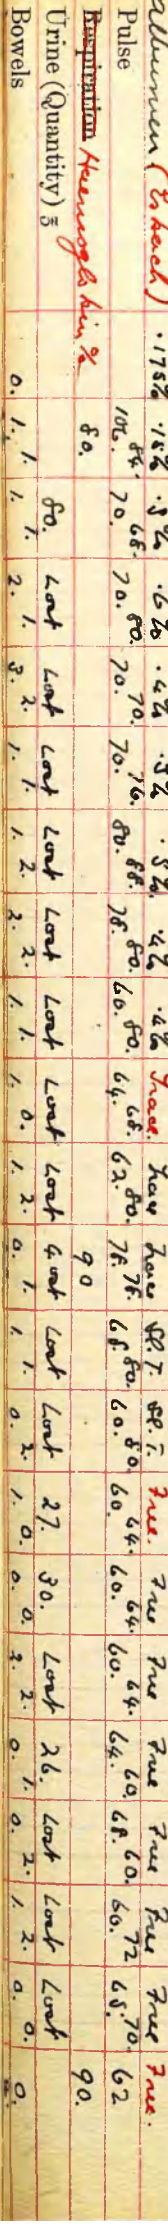 albumen (Esbach) .175% .15% .5% .6% .4% .5% .5% .4% .4% Trace. Trace Trace Sl. T. Sl. T. Free. Free Free Free Free Free Free Free.
Pulse 106. 84. 70. 68. 70. 80. 70. 70. 70. 76. 80. 88. 78. 80. 60. 80. 64. 68. 62. 80. 78. 78. 68. 80. 60. 80. 60. 64. 60. 64. 60. 64. 64. 60. 68. 60. 60. 72 68. 70. 62
Respiration Haemoglobin % 80. 90 90.
Urine (Quantity) ℥ 80. Lost Lost Lost Lost Lost Lost Lost Lost Lost Lost Lost 27. 30. Lost 26. Lost Lost Lost
Bowels 0. 1. 1. 1. 1. 2. 1. 3. 2. 1. 1. 1. 2. 2. 2. 1. 1. 1. 0. 1. 2. 0. 1. 1. 1. 0. 2. 1. 0. 0. 0. 3. 2. 0. 1. 0. 2. 1. 2. 0. 0. 0.